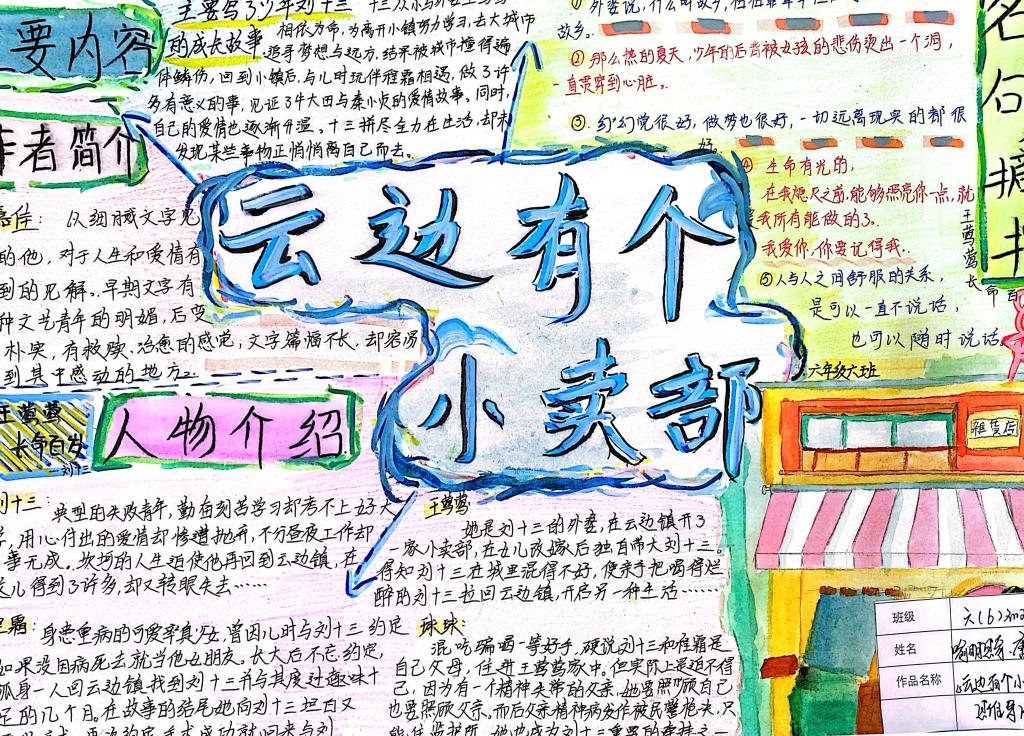 主要内容
主要写了少年刘十三
的成长故事。
相依为命,为离开小镇努力学习,去大城市
追寻梦想与远方,结果被城市撞得遍
体鳞伤,回到小镇后,与儿时玩伴程霜相遇,做了许
多有意义的事,见证了牛大田与秦小贞的爱情故事。同时,
自己的爱情也逐渐升温。十三拼尽全力在生活,却未
发现某些事物正悄悄离自己而去。
故乡。
②那么热的夏天,少年的后背被女孩的悲伤烫出一个洞,
一直贯穿到心脏。
③幻幻觉很好,做梦也很好,一切远离现实的都很
好。
④生命有光的,
在我熄灭之前,能够照亮你一点,就
我所有能做的了。
我爱你,你要记得我。
⑤人与人之间舒服的关系,
是可以一直不说话,
也可以随时说话。
王莺莺
长命百
名句摘抄
作者简介
从细腻文字见
的他,对于人生和爱情有
到的见解。早期文字有
种文艺青年的明媚,后变
朴实,有救赎、治愈的感觉,文字篇幅不长,却容易
到其中感动的地方。
云边有个
小卖部
六年级六班
租赁店
王莺莺
长命百岁
—刘十三
人物介绍
刘十三:典型的失败青年,勤奋刻苦学习却考不上好大
学,用心付出的爱情却惨遭抛弃,不分昼夜工作却
事无成。坎坷的人生迫使他再回到云边镇,在
这儿得到了许多,却又转眼失去……
王莺莺
她是刘十三的外婆,在云边镇开了
一家小卖部,在女儿改嫁后独自带大刘十三。
得知刘十三在城里混得不好,便亲手把喝得烂
醉的刘十三拉回云边镇,开启另一种生活……
程霜:身患重病的可爱率真少女,曾因儿时与刘十三约定
如果没因病死去就当他女朋友。长大后不忘约定,
孤身一人回云边镇找到刘十三并与其度过趣味十
足的几个月。在故事的结尾她向刘十三坦白又
球球:
混吃骗喝一等好手,硬说刘十三和程霜是
自己父母,住进王莺莺家中。但实际上是迫不得
已,因为有一个精神失常的父亲,她要照顾自己
也要照顾父亲。而后父亲精神病发作被民警抱头,只
班级 六(6)
姓名
作品名称 《云边有个小